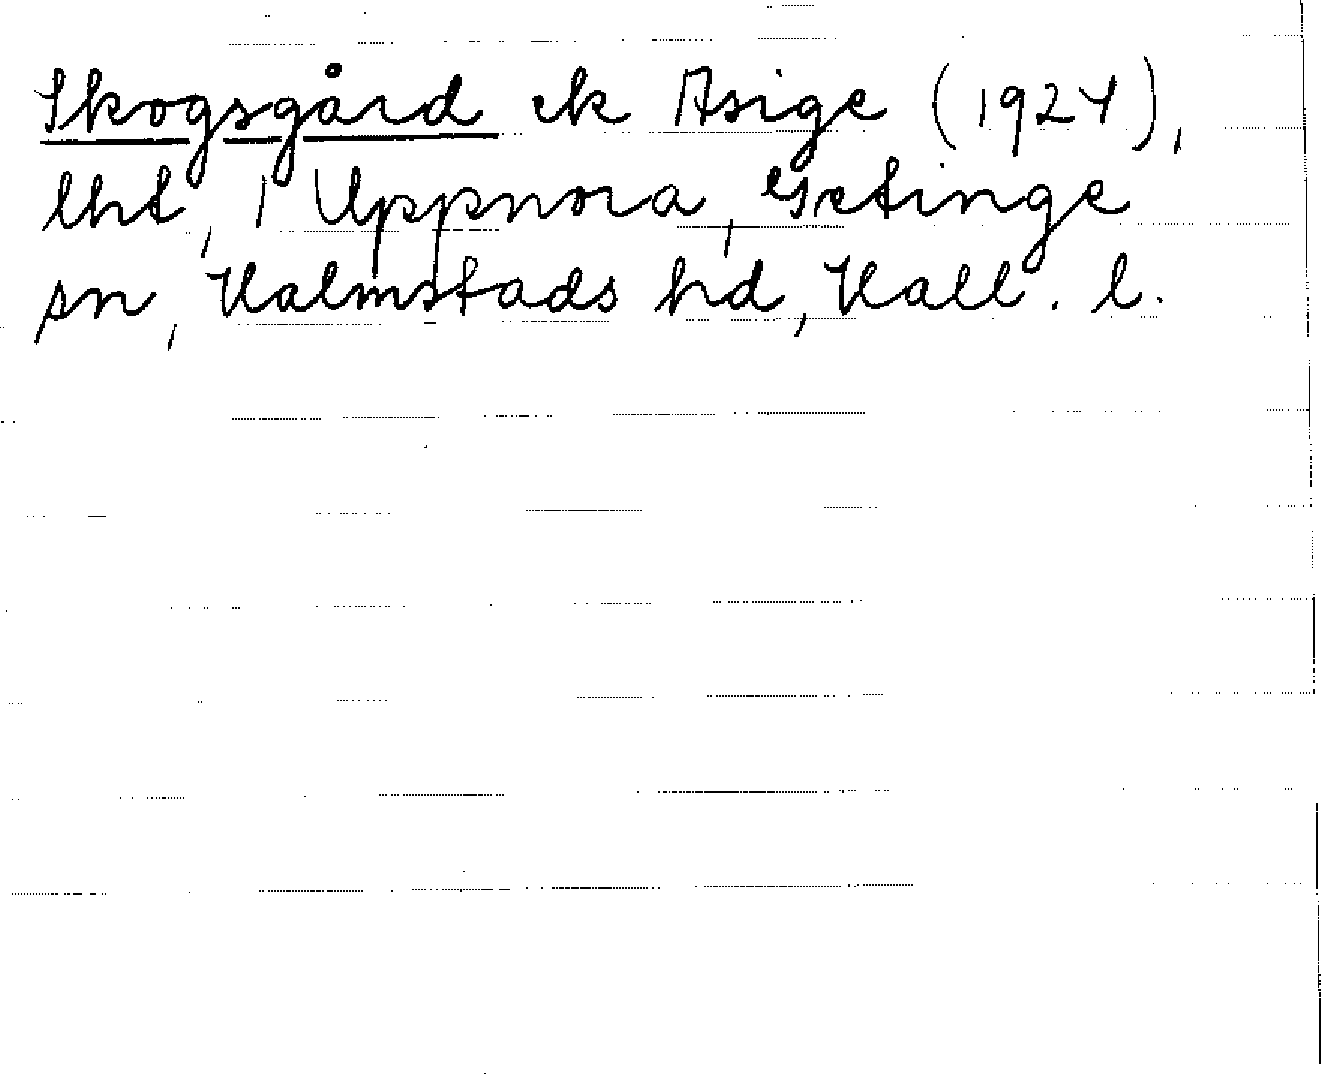 Skogsgård ek Asige (1924),
lht, 1 Uppnora, Getinge
sn, Halmstads hd, Hall. l.